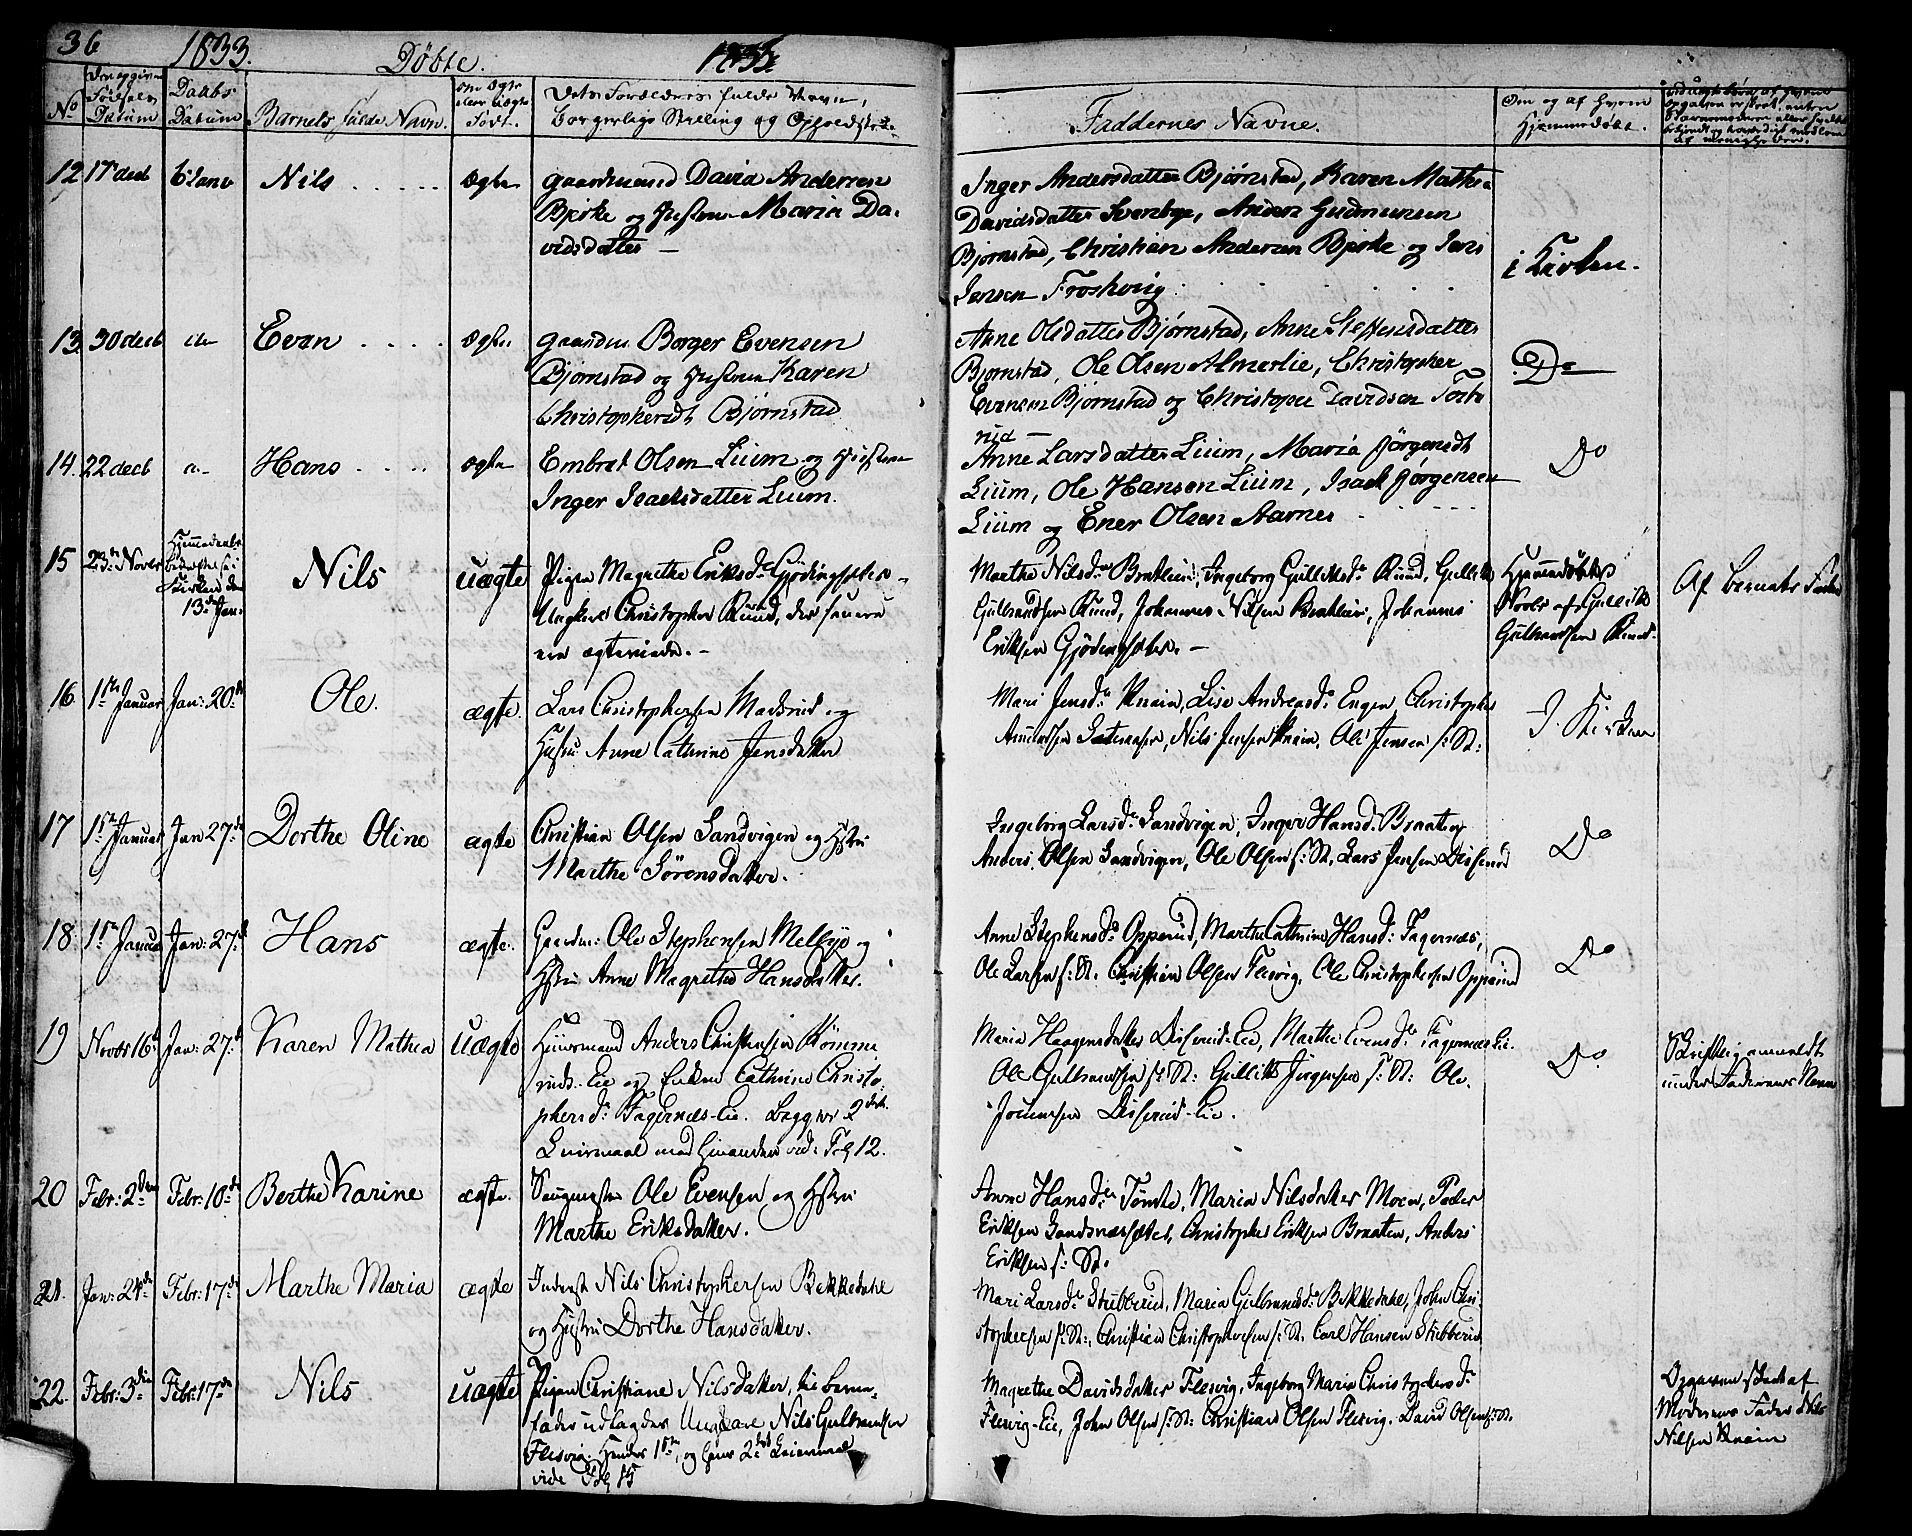 36 1833. Døbte. 1833.
No
Den opgivne Fødsels Datum
Daabs Datum
Barnets fulde Navn.
om Ægte eller Uægte Født.
Dets Forældres fulde Navn,
borgerlige Stilling og Opholdsted.
Faddernes Navne.
Om og af hvem
Hjemmedøbt.
12 17 decb 6 Janv Nils ægte gaardmand David Andersen
Bjerke og Hustrue Maria Da-
vidsdatter —
Inger Andersdatter Bjørnstad, Karen Mathea
Davidsdatter Svenbye, Anders Gudmunsen
Bjørnstad, Christian Andersen Bjerke og Jens
Jensen Froshvig
i Kirken.
13 30 decb do Even ægte gaardm. Borger Evensen
Bjørnstad og Hustrue Karen
Christophersdt Bjørnstad
Anne Olsdatter Bjørnstad, Anne Steffensdatter
Bjørnstad, Ole Olsen Almerlie, Christopher
Evensen Bjørnstad og Christopher Davidsen
Do
14. 22 decb Hans ægte Embret Olsen Lium og Hustrue
Inger Isachsdatter Lium.
Anne Larsdatter Lium, Maria Jørgensdt
Lium, Ole Hansen Lium, Isach Jørgensen
Lium og Ener Olsen Aarnes
Do
15 23de Novbr Hjemmedaab
bekræftet i
Kirken den
13de Jan: Nils uægte Pigen Magrethe Eriksdr
Ungkarl Christopher Ruud, der senere
ere ægteviede. —
Marthe Nilsdr Ingeborg Gulliksdr Ruud, Gullik
Gulbrandsen Ruud, Johannes Nilsen Johannes
Eriksen
Hjemmedøbt
Novbr af Gullik
Gulbrandsen Ruud.
Af Barnets Fader
16 1ste Januar Jan: 20de Ole. ægte. Lars Christophersen Madsrud og
Hustru Anne Cathrine Jensdatter
Mari Jensdr Knain, Lise Andreasdr Engen, Christopher
Amundsen Nils Jensen Knain, Ole Jensen s: St:
I Kirken
17 1ste Januar Jan 27de Dorthe Oline ægte Christian Olsen Sandvigen og Hstru
Marthe Sörensdatter.
Ingeborg Larsdr Sandvigen, Inger Hansd: Braaten
Anders Olsen Sandvigen, Ole Olsen s: St, Lars Jensen Diserud
Do
18 1ste Januar Jan: 27de Hans ægte. Gaardm: Ole Stephensen Mellbye og
Hstru Anne Magrethe Hansdatter.
Anne Stephensdr Opperud, Marthe Cathrine Hansd: Fagernæs,
Ole Larsen s: St. Christian Olsen Flesvig, Ole Christophersen Opperud
Do
19 Novbr 16de Jan: 27de Karen Mathea Uægte Huusmand Anders Christiansen
Eie og Enken Cathrine Christo-
phersdr Fagernæs-Eie. Begges 2det
Leiermaal med hinanden vid: Fol 12.
Maria Haagensdatter Diserud-Eie, Marthe Evensdr Fagernæs Eie.
Ole Gulbrandsen s: St: Gullik Jörgensen s: St: Ole
Diserud-Eie.
Do.
Skriftlig anmeldt
under Faderens Navn
20 Febr: 2den Febr: 10de Berthe Karine ægte. Saugmester Ole Evensen og Hstru
Marthe Eriksdatter.
Anne Hansdr Tömte, Maria Nilsdatter Moen, Peder
Eriksen Sandsnæssætet, Christopher Eriksen Braaten, Anders
Eriksen s: St.
21. Jan: 24de Febr: 17de Marthe Maria ægte Inderst Nils Christophersen Bekkedahl
og Hustru Dorthe Hansdatter.
Mari Larsdr Stubberud, Maria Gulbrandsdr Bekkedahl, John Chri-
stophersen s: St:, Christian Christophersen s: St. Carl Hansen Stubberud
22. Febr: 3die Febr: 17de Nils uægte Pigen Christiane Nilsdatter, til barne-
fader udlagdes Ungkarl Nils Gulbrandsen
Flesvig. Hendes 1ste, og hans 2det Leiermaal
vide Fol 15
Magrethe Davidsdatter Flesvig, Ingeborg Maria Christophersdr
Flesvig-Eie, John Olsen s: St: Christian Olsen Flesvig. David Olsen s: St.
Opgaven skeet af
Moderens Fader Nils
Nilsen Knain